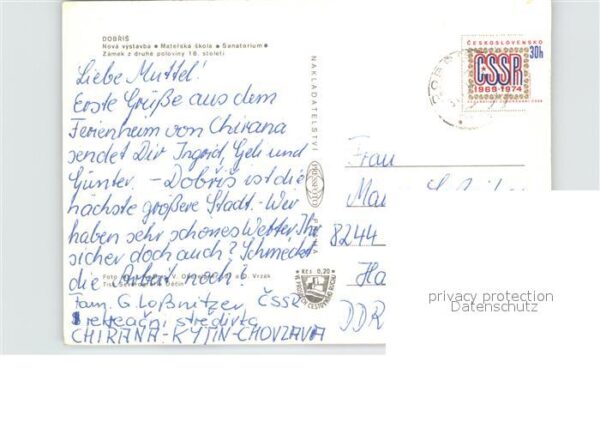 DOBŘÍŠ
Nová výstavba • Mateřská škola • Sanatorium •
Zámek z druhé poloviny 18. století
Liebe Mutteł!
Erste Grüße aus dem
Ferienheim von Chirana
sendet Dir Ingrid, Geli und
Günter. - Dobříš ist die
nächste größere Stadt. - Wir
haben sehr schönes Wetter. Ihr
sicher doch auch? Schmeckt
die Arbeit noch?
Foto V. Vrzák
Tisk Děčín
Fam. G. Loßnitzer ČSSR
rekreační středisko
CHIRANA-KYTIN-CHOVZAVA
NAKLADATELSTVÍ
PRESSFOTO
Kčs 0,20
ČESKOSLOVENSKO
30h
ČSSR
1969-1974
Frau
8244
Ha
DDR
privacy protection
Datenschutz